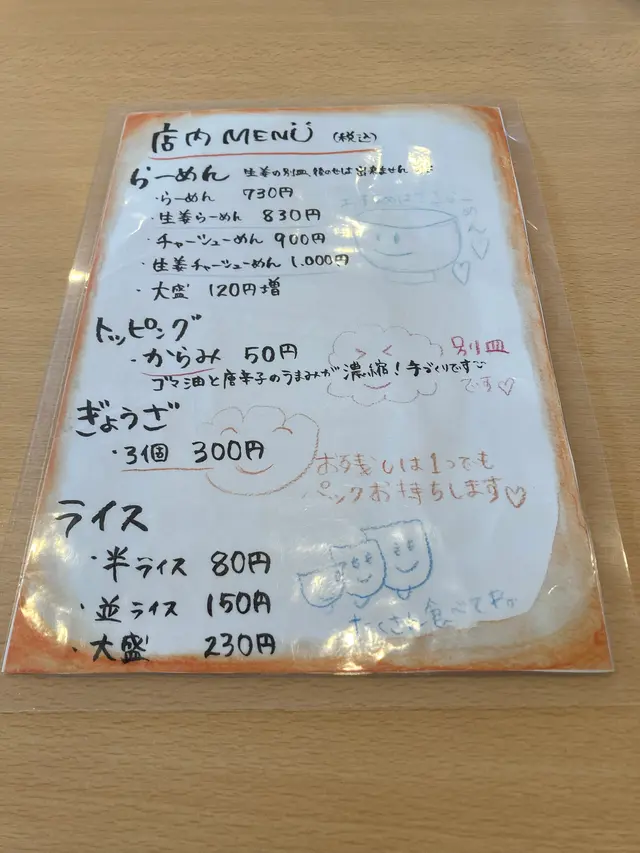 店内 MENU (税込)
らーめん 生姜の別皿、後のせは出来ません
・らーめん 730円
・生姜らーめん 830円
・チャーシューめん 900円
・生姜チャーシューめん 1.000円
・大盛 120円増
トッピング
・からみ 50円 別皿です♡
ゴマ油と唐辛子のうまみが濃縮!手づくりです
ぎょうざ
・3個 300円
お残しは1つでも
パックお持ちします♡
ライス
・半ライス 80円
・並ライス 150円
・大盛 230円
たくさん食べてね